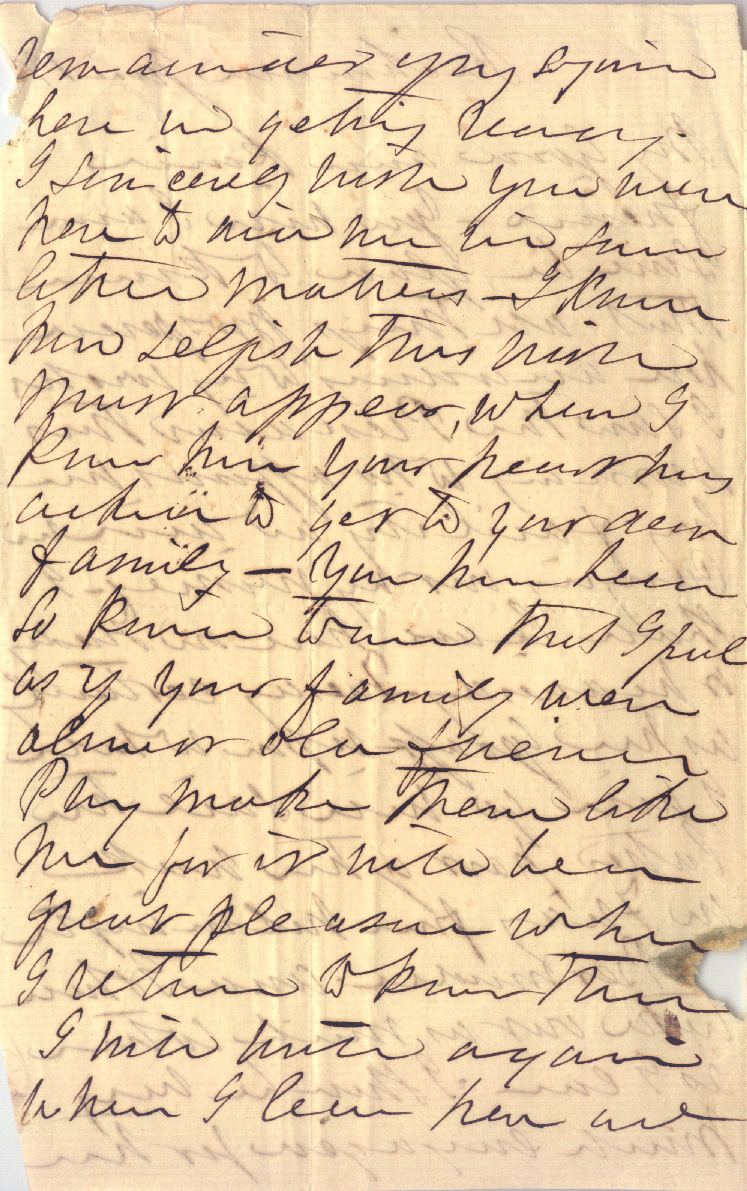 remainder of my sojourn
here in getting ready.
I sincerely wish you were
here to aid me in some
little matters - I know
how selfish this wish
must appear, when I
know how your heart has
ached to get to your dear
family - You have been
so kind to me that I feel
as if your family were
almost old friends
Pray make them like
me for it will be a
great pleasure when
I return to know them
I will write again
when I leave here and